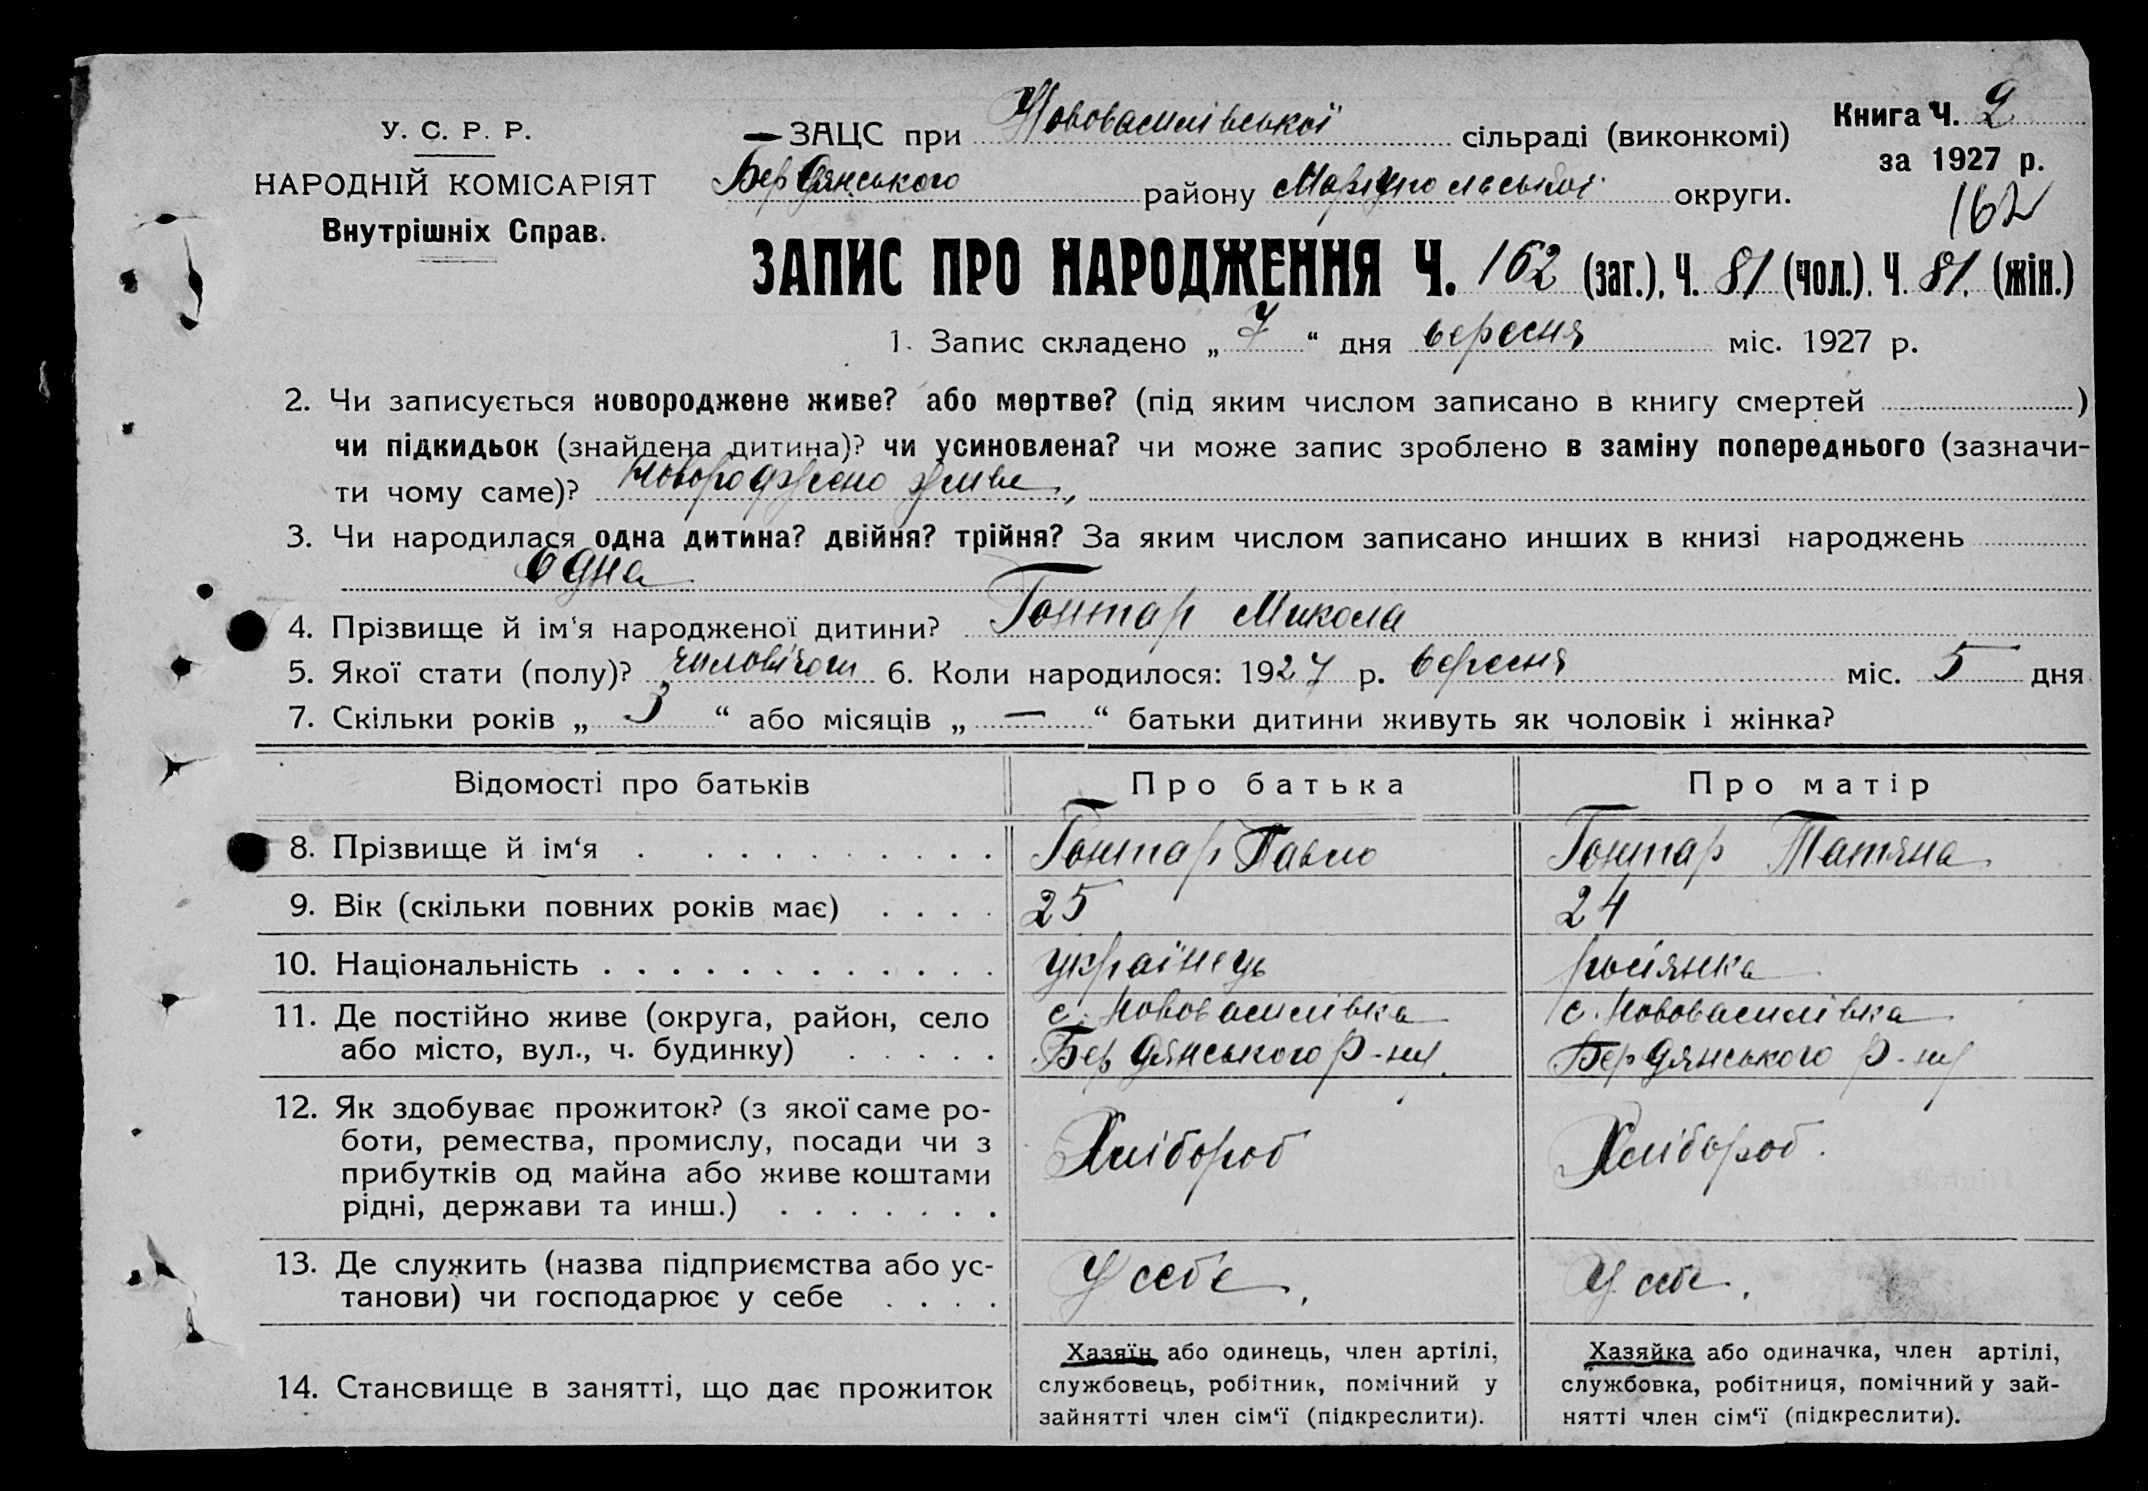 У. С. Р. Р.
НАРОДНІЙ КОМІСАРІЯТ
Внутрішніх Справ.
— ЗАЦС при Нововасилівської сільраді (виконкомі)
Бердянського району Маріупольської округи.
Книга Ч. 2
за 1927 р.
162
ЗАПИС ПРО НАРОДЖЕННЯ Ч. 162 (заг.), Ч. 81 (чол.), Ч. 81. (жін.)
1. Запис складено „ 7 “ дня вересня міс. 1927 р.
2. Чи записується новороджене живе? або мертве? (під яким числом записано в книгу смертей )
чи підкидьок (знайдена дитина)? чи усиновлена? чи може запис зроблено в заміну попереднього (зазначи-
ти чому саме)? Новороджено живе,
3. Чи народилася одна дитина? двійня? трійня? За яким числом записано инших в книзі народжень
Одна
4. Прізвище й ім'я народженої дитини? Гонтар Микола
5. Якої стати (полу)? 6. Коли народилося: 1927 р. вересня міс. 5 дня
7. Скільки років „ 3 “ або місяців „ — “ батьки дитини живуть як чоловік і жінка?
Відомості про батьків Про батька Про матір
8. Прізвище й ім‘я . . . . . . . . . . Гонтар Павло Гонтар Татяна
9. Вік (скільки повних років має) . . . . 25 24
10. Національність . . . . . . . . . . . . . українець росіянка
11. Де постійно живе (округа, район, село с. Нововасилівка с. Нововасилівка
або місто, вул., ч. будинку) . . . . . Бердянського р-ну. Бердянського р-ну
12. Як здобуває прожиток? (з якої саме ро-
боти, ремества, промислу, посади чи з Хлібороб Хлібороб.
прибутків од майна або живе коштами
рідні, держави та инш.) . . . . . . .
13. Де служить (назва підприємства або ус- У себе, У себе.
танови) чи господарює у себе . . . .
14. Становище в занятті, що дає прожиток
Хазяїн або одинець, член артілі,
службовець, робітник, помічний у
зайнятті член сім‘ї (підкреслити).
Хазяйка або одиначка, член артілі,
службовка, робітниця, помічний у зай-
нятті член сім‘ї (підкреслити).